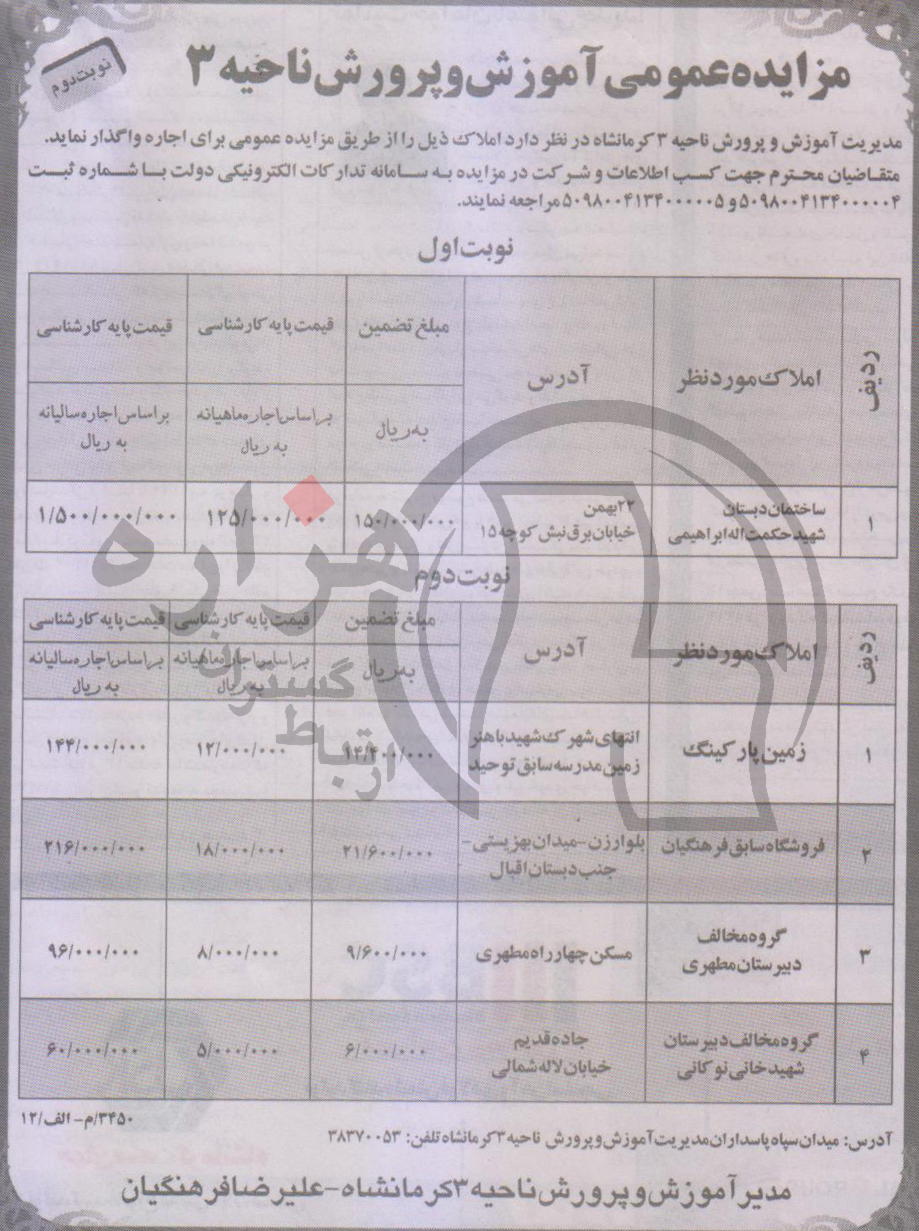 مزایده عمومی آموزش و پرورش ناحیه ۳
نوبت دوم
مدیریت آموزش و پرورش ناحیه ۳ کرمانشاه در نظر دارد املاک ذیل را از طریق مزایده عمومی برای اجاره واگذار نماید.
متقاضیان محترم جهت کسب اطلاعات و شرکت در مزایده به سامانه تدارکات الکترونیکی دولت با شماره ثبت
۵۰۹۸۰۰۴۱۳۴۰۰۰۰۰۴ و ۵۰۹۸۰۰۴۱۳۴۰۰۰۰۰۵ مراجعه نمایند.
نوبت اول
ردیف املاک مورد نظر آدرس مبلغ تضمین قیمت پایه کارشناسی قیمت پایه کارشناسی
به ریال براساس اجاره ماهیانه به ریال براساس اجاره سالیانه به ریال
۱ ساختمان دبستان شهید حکمت اله ابراهیمی ۲۲بهمن خیابان برق نبش کوچه ۱۵ ۱۵۰/۰۰۰/۰۰۰ ۱۲۵/۰۰۰/۰۰۰ ۱/۵۰۰/۰۰۰/۰۰۰
نوبت دوم
ردیف املاک مورد نظر آدرس مبلغ تضمین قیمت پایه کارشناسی قیمت پایه کارشناسی
به ریال براساس اجاره ماهیانه به ریال براساس اجاره سالیانه به ریال
۱ زمین پارکینگ انتهای شهرک شهید باهنر زمین مدرسه سابق توحید ۱۴/۴۰۰/۰۰۰ ۱۲/۰۰۰/۰۰۰ ۱۴۴/۰۰۰/۰۰۰
۲ فروشگاه سابق فرهنگیان بلوار زن - میدان بهزیستی - جنب دبستان اقبال ۲۱/۶۰۰/۰۰۰ ۱۸/۰۰۰/۰۰۰ ۲۱۶/۰۰۰/۰۰۰
۳ گروه مخالف دبیرستان مطهری مسکن چهارراه مطهری ۹/۶۰۰/۰۰۰ ۸/۰۰۰/۰۰۰ ۹۶/۰۰۰/۰۰۰
۴ گروه مخالف دبیرستان شهید خانی نوکانی جاده قدیم خیابان لاله شمالی ۶/۰۰۰/۰۰۰ ۵/۰۰۰/۰۰۰ ۶۰/۰۰۰/۰۰۰
۳۴۵۰/م - الف/۱۲
آدرس: میدان سپاه پاسداران مدیریت آموزش و پرورش ناحیه ۳ کرمانشاه تلفن: ۳۸۳۷۰۰۵۳
مدیر آموزش و پرورش ناحیه ۳ کرمانشاه - علیرضا فرهنگیان
هزاره
گستران
ارتباط